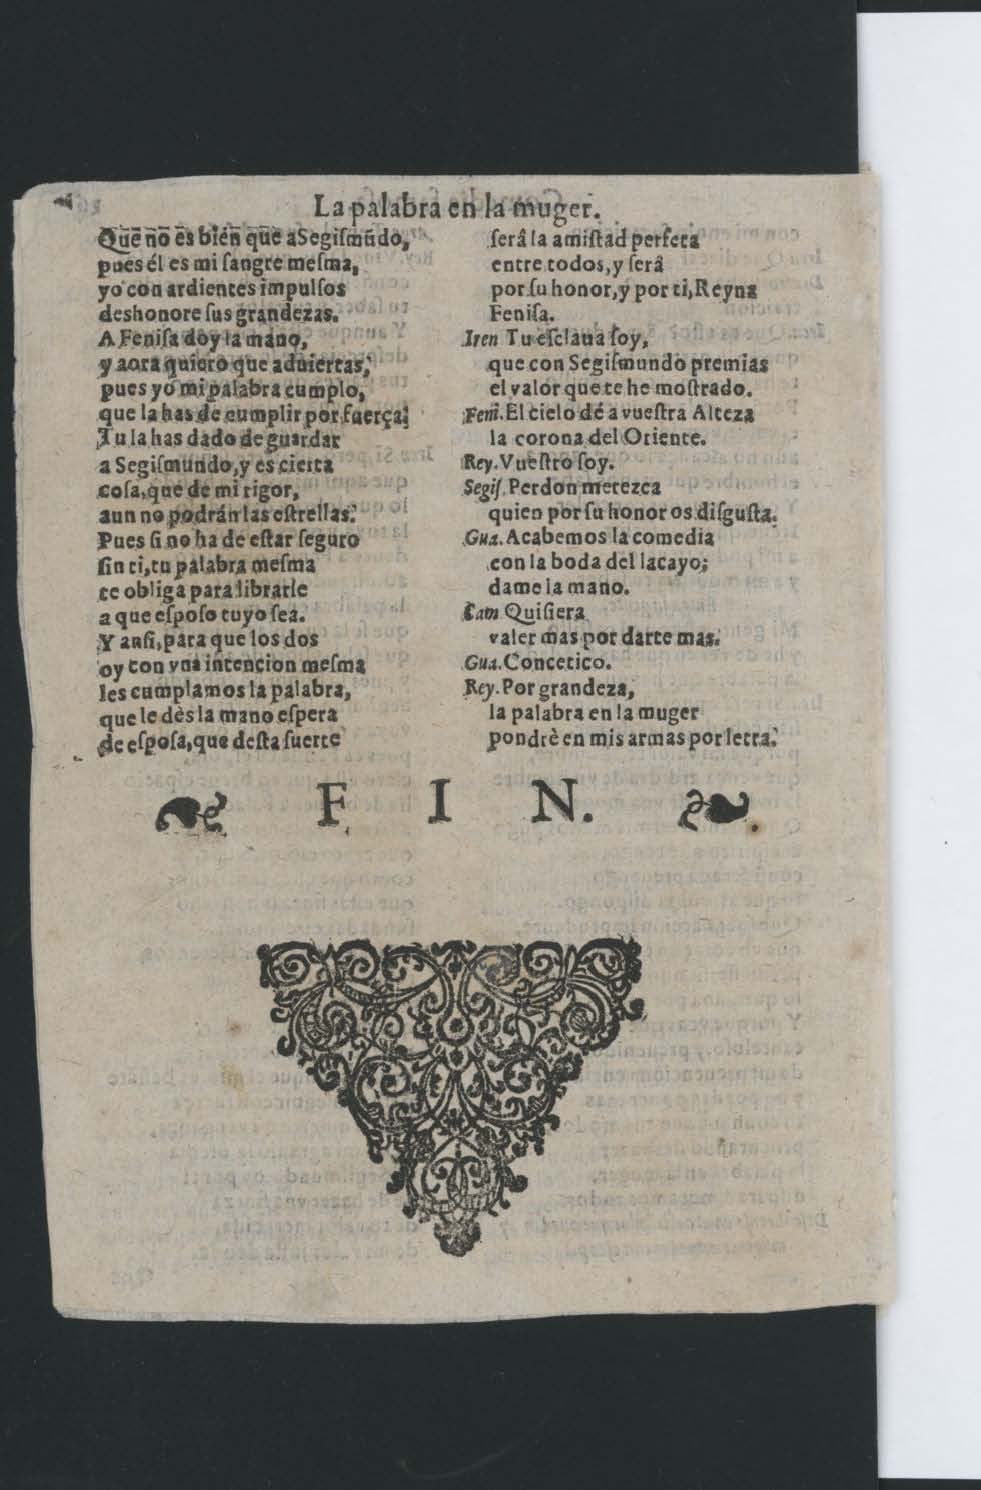 La palabra en la muger.
Quē nō ēs bien quē a Segiſmūdo,
pues él es mi ſangre meſma,
yo con ardientes impulſos
deshonore ſus grandezas.
A Feniſa doy la mano,
y aora quiero que aduiertas,
pues yo mi palabra cumplo,
que la has de cumplir por fuerça;
Tu la has dado de guardar
a Segiſmundo, y es cierta
coſa, que de mi rigor,
aun no podrán las eſtrellas.
Pues ſi no ha de eſtar ſeguro
ſin ti, tu palabra meſma
te obliga para librarle
a que eſpoſo tuyo ſea.
Y anſi, para que los dos
oy con vna intencion meſma
les cumplamos la palabra,
que le dès la mano eſpera
de eſpoſa, que deſta ſuerte
ſerâ la amiſtad perfeta
entre todos, y ſerâ
por ſu honor, y por ti, Reyna
Feniſa.
Iren Tu eſclaua ſoy,
que con Segiſmundo premias
el valor que te he moſtrado.
Feni. El cielo dé a vueſtra Alteza
la corona del Oriente.
Rey. Vueſtro ſoy.
Segiſ. Perdon merezca
quien por ſu honor os diſguſta.
Gua. Acabemos la comedia
con la boda del lacayo;
dame la mano.
Cam Quiſiera
valer mas por darte mas.
Gua. Concetico.
Rey. Por grandeza,
la palabra en la muger
pondrè en mis armas por letra.
F I N.